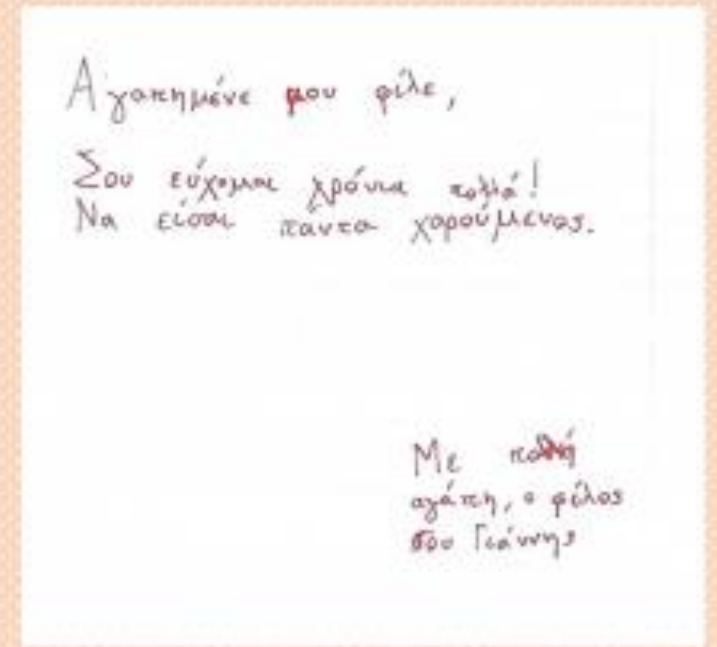 Αγαπημένε μου φίλε,
Σου εύχομαι χρόνια πολλά!
Να είσαι πάντα χαρούμενος.
Με πολλή
αγάπη, ο φίλος
σου Γιάννης